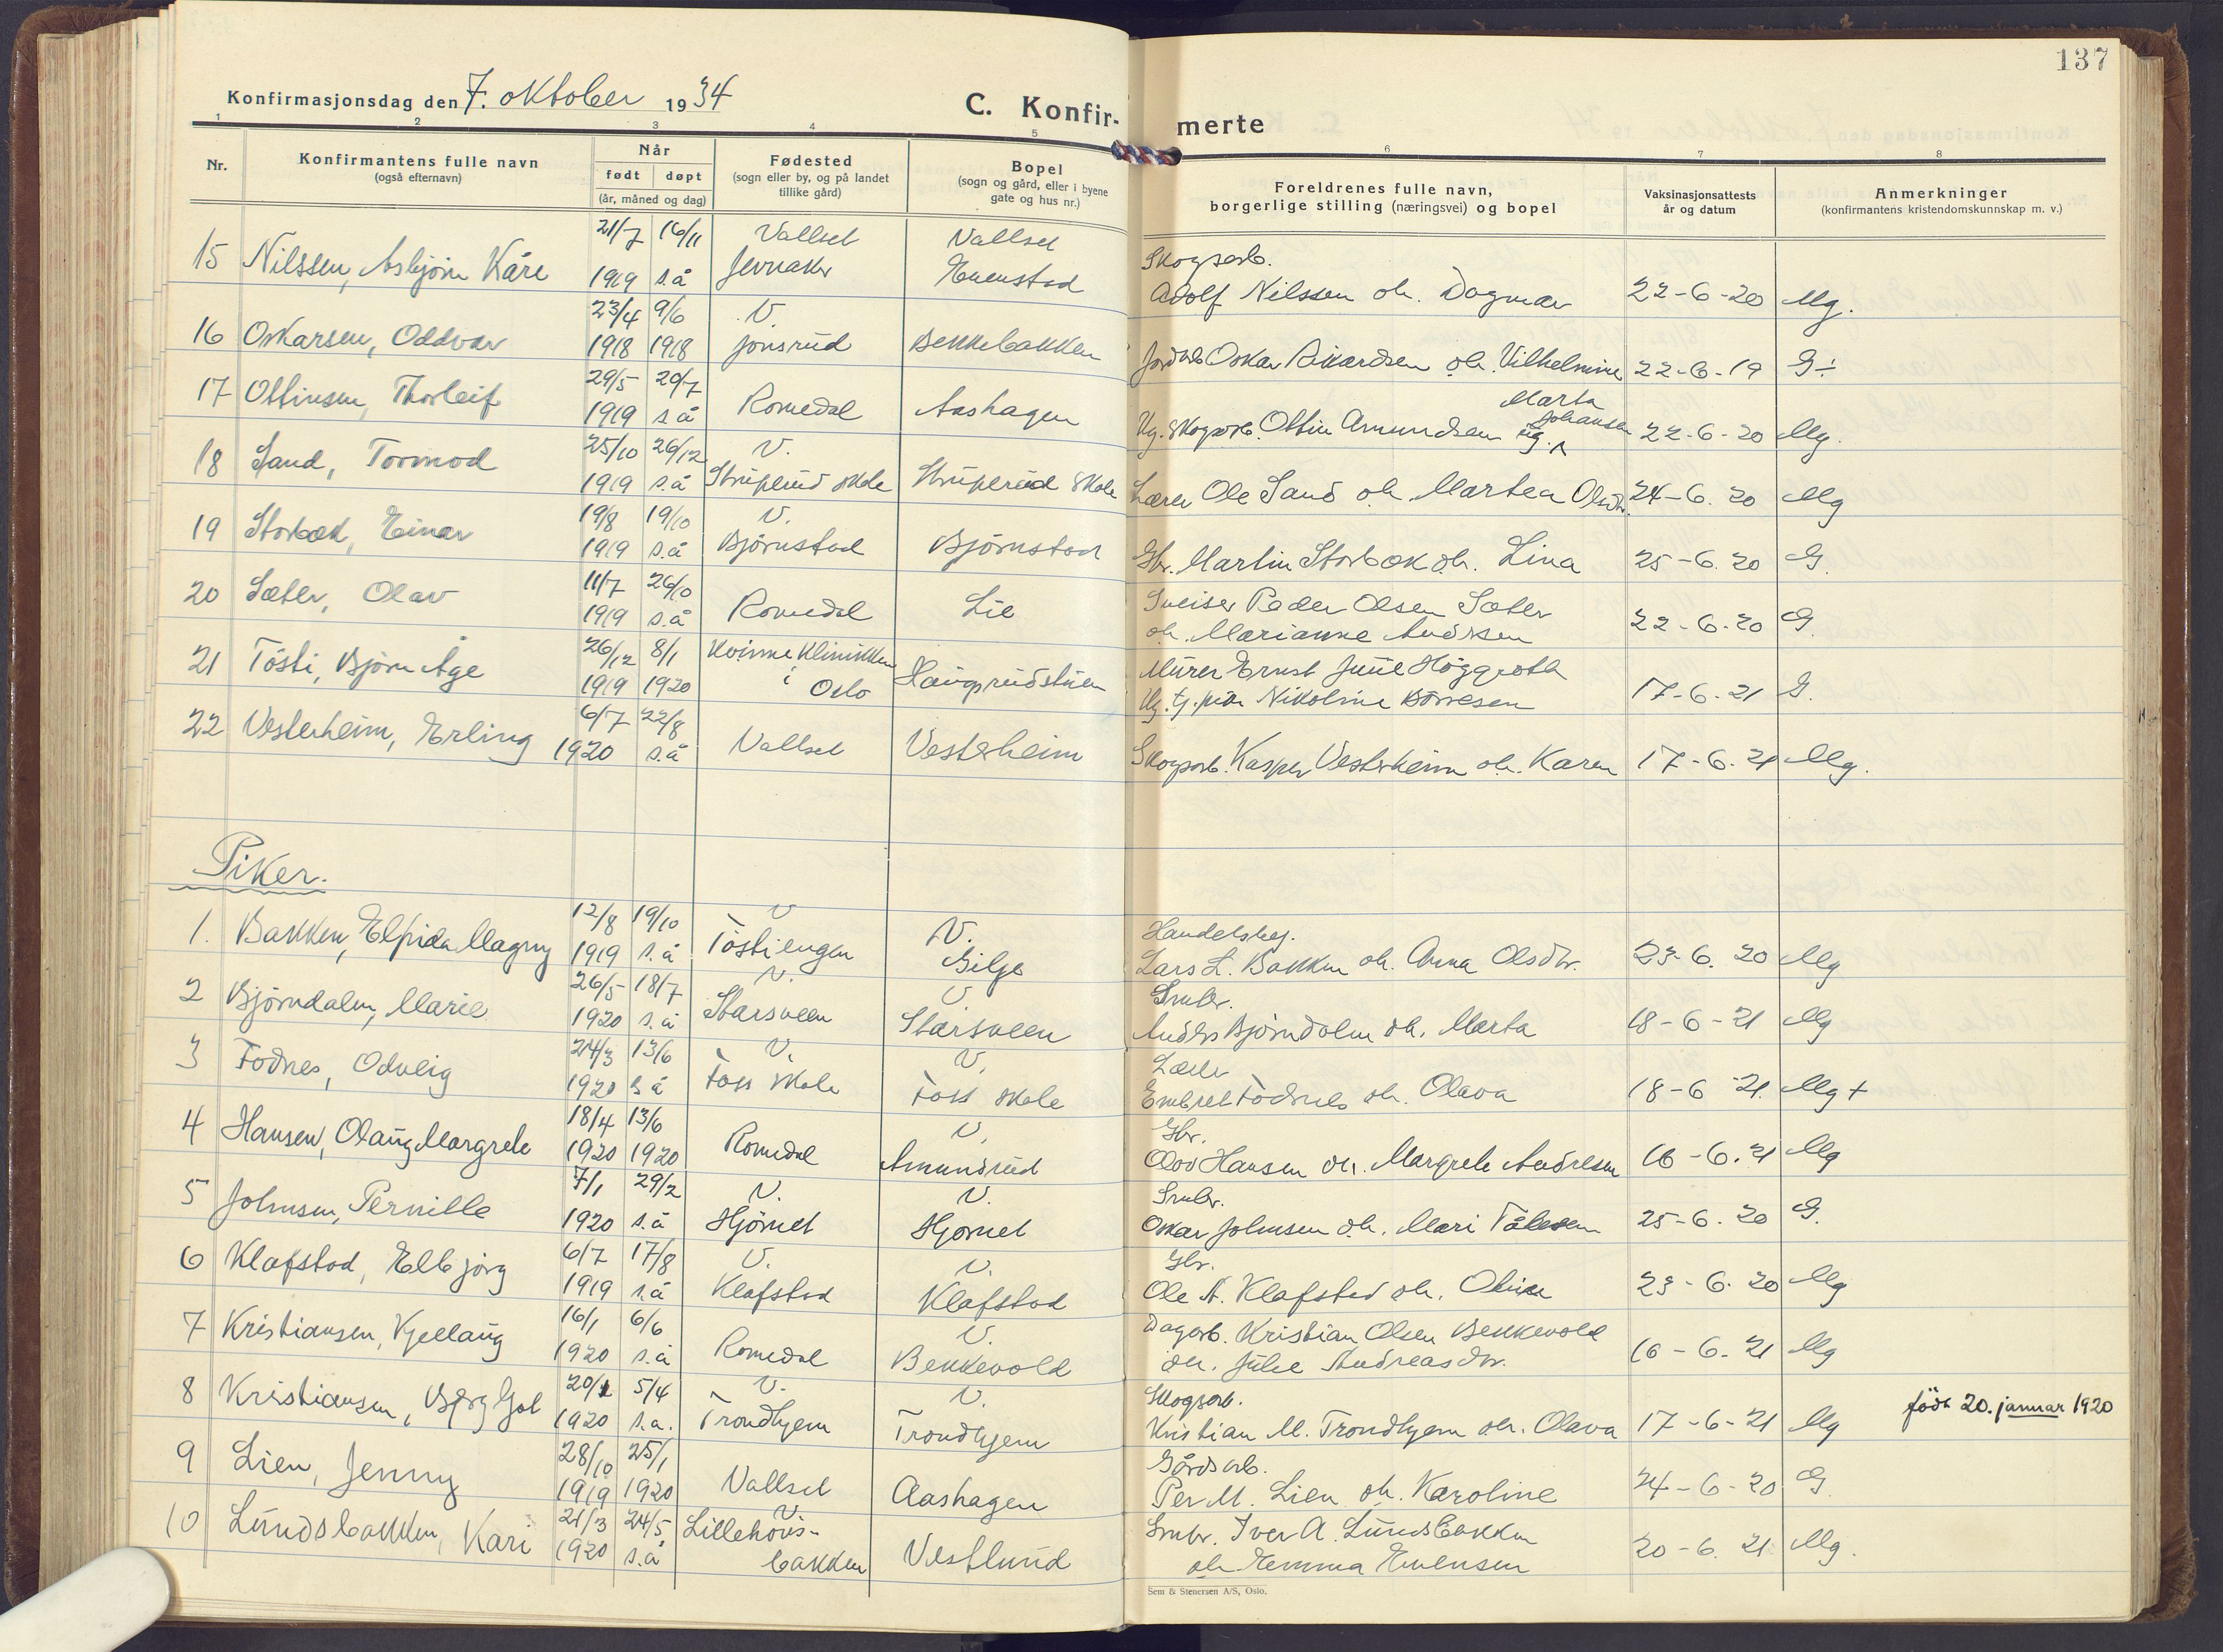 Konfirmasjonsdag den 7. oktober 1934
C. Konfir-
merte
137
1 2 3 4 5 6 7 8
Nr.
Konfirmantens fulle navn
(også efternavn)
Når
født døpt
(år, måned og dag)
Fødested
(sogn eller by, og på landet
tillike gård)
Bopel
(sogn og gård, eller i byene
gate og hus nr.)
Foreldrenes fulle navn,
borgerlige stilling (næringsvei) og bopel
Vaksinasjonsattests
år og datum
Anmerkninger
(konfirmantens kristendomskunnskap m. v.)
21/7 16/11 Vallset Vallset Skogsarb.
15 Nilssen, Asbjörn Kåre 1919 s.å Jevnaker Evenstad Adolf Nilssen oh. Dagmar 22-6-20 Mg.
23/4 9/6 V.
16 Oskarsen, Oddvar 1918 1918 Jonsrud Bekkebakken Jordarb Oskar Rikardsen oh. Vilhelmine 22-6-19 G÷
29/5 20/7 Marta
17 Ottinsen, Thorleif 1919 s å Romedal Aashagen Ug. skogsarb. Ottin Amundsen ug. Johansen 22-6-20 Mg.
25/10 26/12 V.
18 Sand, Tormod 1919 s.å Struperud skole Struperud skole Lærer Ole Sand oh. Martea Olsdtr. 24-6.20 Mg
19/8 19/10 V.
19 Storbæk, Einar 1919 s.å Björnstad Björnstad Gbr. Martin Storbæk oh. Lina 25-6.20 G.
11/7 26/10 Sveiser Peder Olsen Sæter
20 Sæter, Olav 1919 s.å Romedal Lie oh. Marianne Andrsen 22-6-20 G.
26/12 8/1 Kvinneklinikken Murer Ernst Juul Höggroth
21 Tösti, Björn Åge 1919 1920 i Oslo Haugsrudstuen Ug. tj.pike Nikoline Börresen 17-6-21 G.
6/7 22/8
22 Vesterheim, Erling 1920 s.å Vallset Vesterheim Skogsarb. Kasper Vesterheim oh. Karen 17-6-21 Mg.
Piker.
12/8 19/10 V V. Handelsbej.
1. Bakken, Elfrida Magny 1919 s.å Töstiengen Gilje Lars L. Bakken oh. Anna Olsdtr. 23-6.20 Mg
26/5 18/7 V. V. Smbr.
2 Björndalen, Marie 1920 s.å Starsveen Starsveen Anders Björndalen oh. Marta 18-6-21 Mg
24/3 13/6 V. V. Lærer
3 Fodnes, Odveig 1920 s å Foss skole Foss skole Embret Fodnes oh. Olava 18-6-21. Mg+
18/4 13/6 V. Gbr.
4 Hansen, Olaug Margrete 1920 1920 Romedal Amundrud Olav Hansen oh. Margrete Andresen 16-6.21 Mg
7/1 29/2 V. V. Smbr.
5 Johnsen, Pernille 1920 s.å Hjörnet Hjörnet Oskar Johnsen oh. Mari Pålesen 25-6.20 G.
6/7 17/8 V. V. Gbr.
6 Klafstad, Elbjörg 1919 s.å Klafstad Klafstad Ole A. Klafstad oh. 23-6.20 Mg
16/1 6/6 V. Dagarb. Kristian Olsen Bekkevold
7 Kristiansen, Kjellaug 1920 s.å Romedal Bekkevold oh. Julie Andreasdtr. 16-6.21 Mg
20/1 5/4 V. V. Skogsarb.
8 Kristiansen, Bjørg Gol 1920 s.a. Trondhjem Trondhjem Kristian M. Trondhjem oh. Olava 17-6-21 Mg född 20. januar 1920
28/10 25/1 Gårdsarb.
9 Lien, Jenny 1919 1920 Vallset Aashagen Per M. Lien oh. Karoline 24-6-20 G
21/3 24/5 V. Lillehovs- Smbr. Iver A. Lundsbakken
10 Lundsbakken, Kari 1920 s.å bakken Vestlund oh Emma Evensen 20-6.21 Mg.
Sem & Stenersen A/S, Oslo.